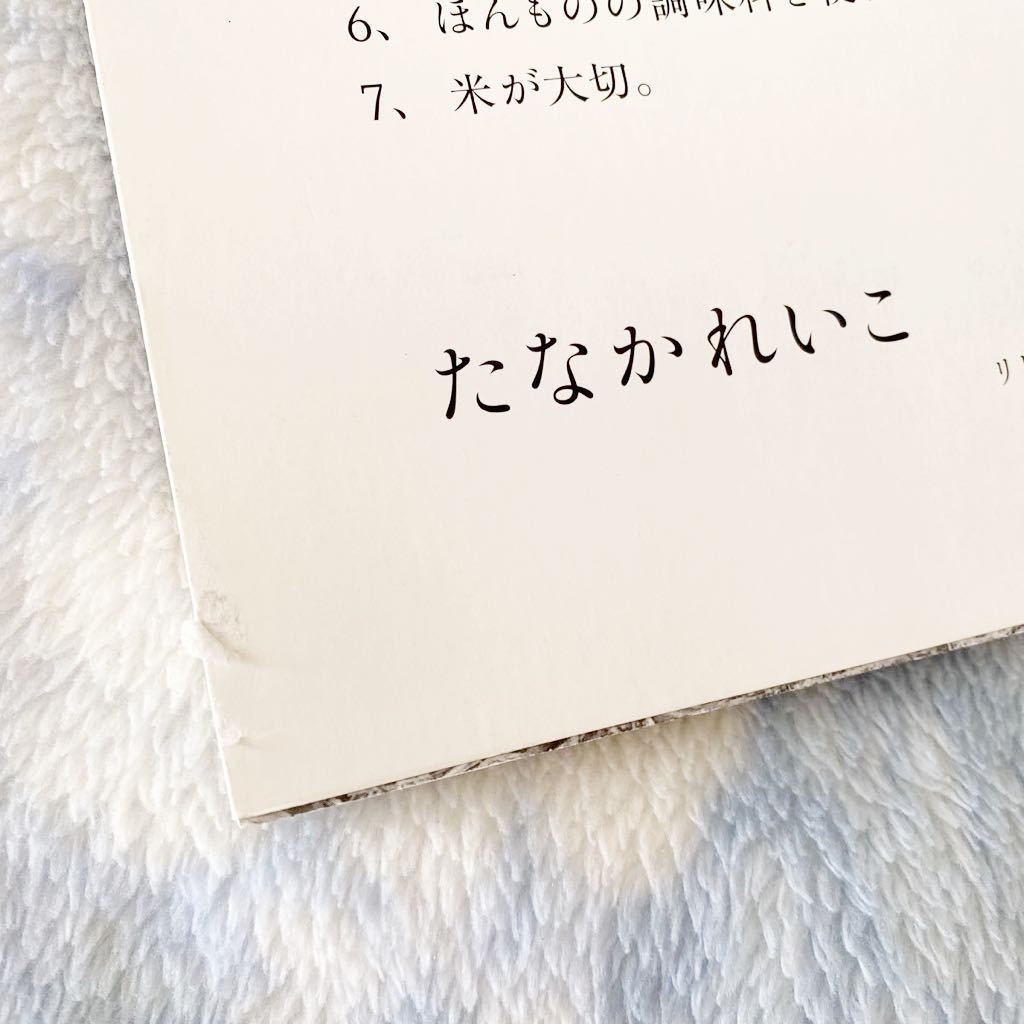 6、 ほんものの調味料を
7、 米が大切。
たなかれいこ
リ